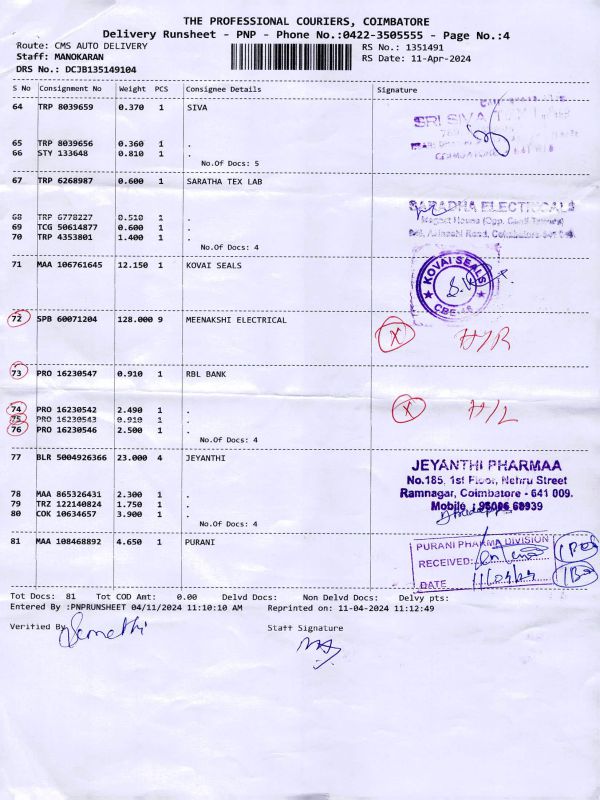 THE PROFESSIONAL COURIERS, COIMBATORE
Delivery Runsheet - PNP - Phone No.:0422-3505555 - Page No.:4
Route: CMS AUTO DELIVERY RS No.: 1351491
Staff: MANOKARAN RS Date: 11-Apr-2024
DRS No.: DCJB135149104
S No Consignment No Weight PCS Consignee Details Signature
64 TRP 8039659 0.370 1 SIVA
SRI SIVA
65 TRP 8039656 0.360 1 .
66 STY 133648 0.810 1 .
No.Of Docs: 5
67 TRP 6268987 0.600 1 SARATHA TEX LAB
SARADHA ELECTRICALS
68 TRP 6778227 0.510 1 .
69 TCG 50614877 0.600 1 .
70 TRP 4353801 1.400 1 .
No.Of Docs: 4
71 MAA 106761645 12.150 1 KOVAI SEALS
KOVAI SEALS
CBE-18
72 SPB 60071204 128.000 9 MEENAKSHI ELECTRICAL
X H/R
73 PRO 16230547 0.910 1 RBL BANK
74 PRO 16230542 2.490 1 .
X H/L
75 PRO 16230543 0.910 1 .
76 PRO 16230546 2.500 1 .
No.Of Docs: 4
77 BLR 5004926366 23.000 4 JEYANTHI
JEYANTHI PHARMAA
No.185, 1st Floor, Nehru Street
Ramnagar, Coimbatore - 641 009.
Mobile : 95006 68939
78 MAA 865326431 2.300 1 .
79 TRZ 122140824 1.750 1 .
80 COK 10634657 3.900 1 .
No.Of Docs: 4
81 MAA 108468892 4.650 1 PURANI
PURANI PHARMA DIVISION
RECEIVED:
DATE 11/04/24
Tot Docs: 81 Tot COD Amt: 0.00 Delvd Docs: Non Delvd Docs: Delvy pts:
Entered By :PNPRUNSHEET 04/11/2024 11:10:10 AM Reprinted on: 11-04-2024 11:12:49
Verified By Staff Signature